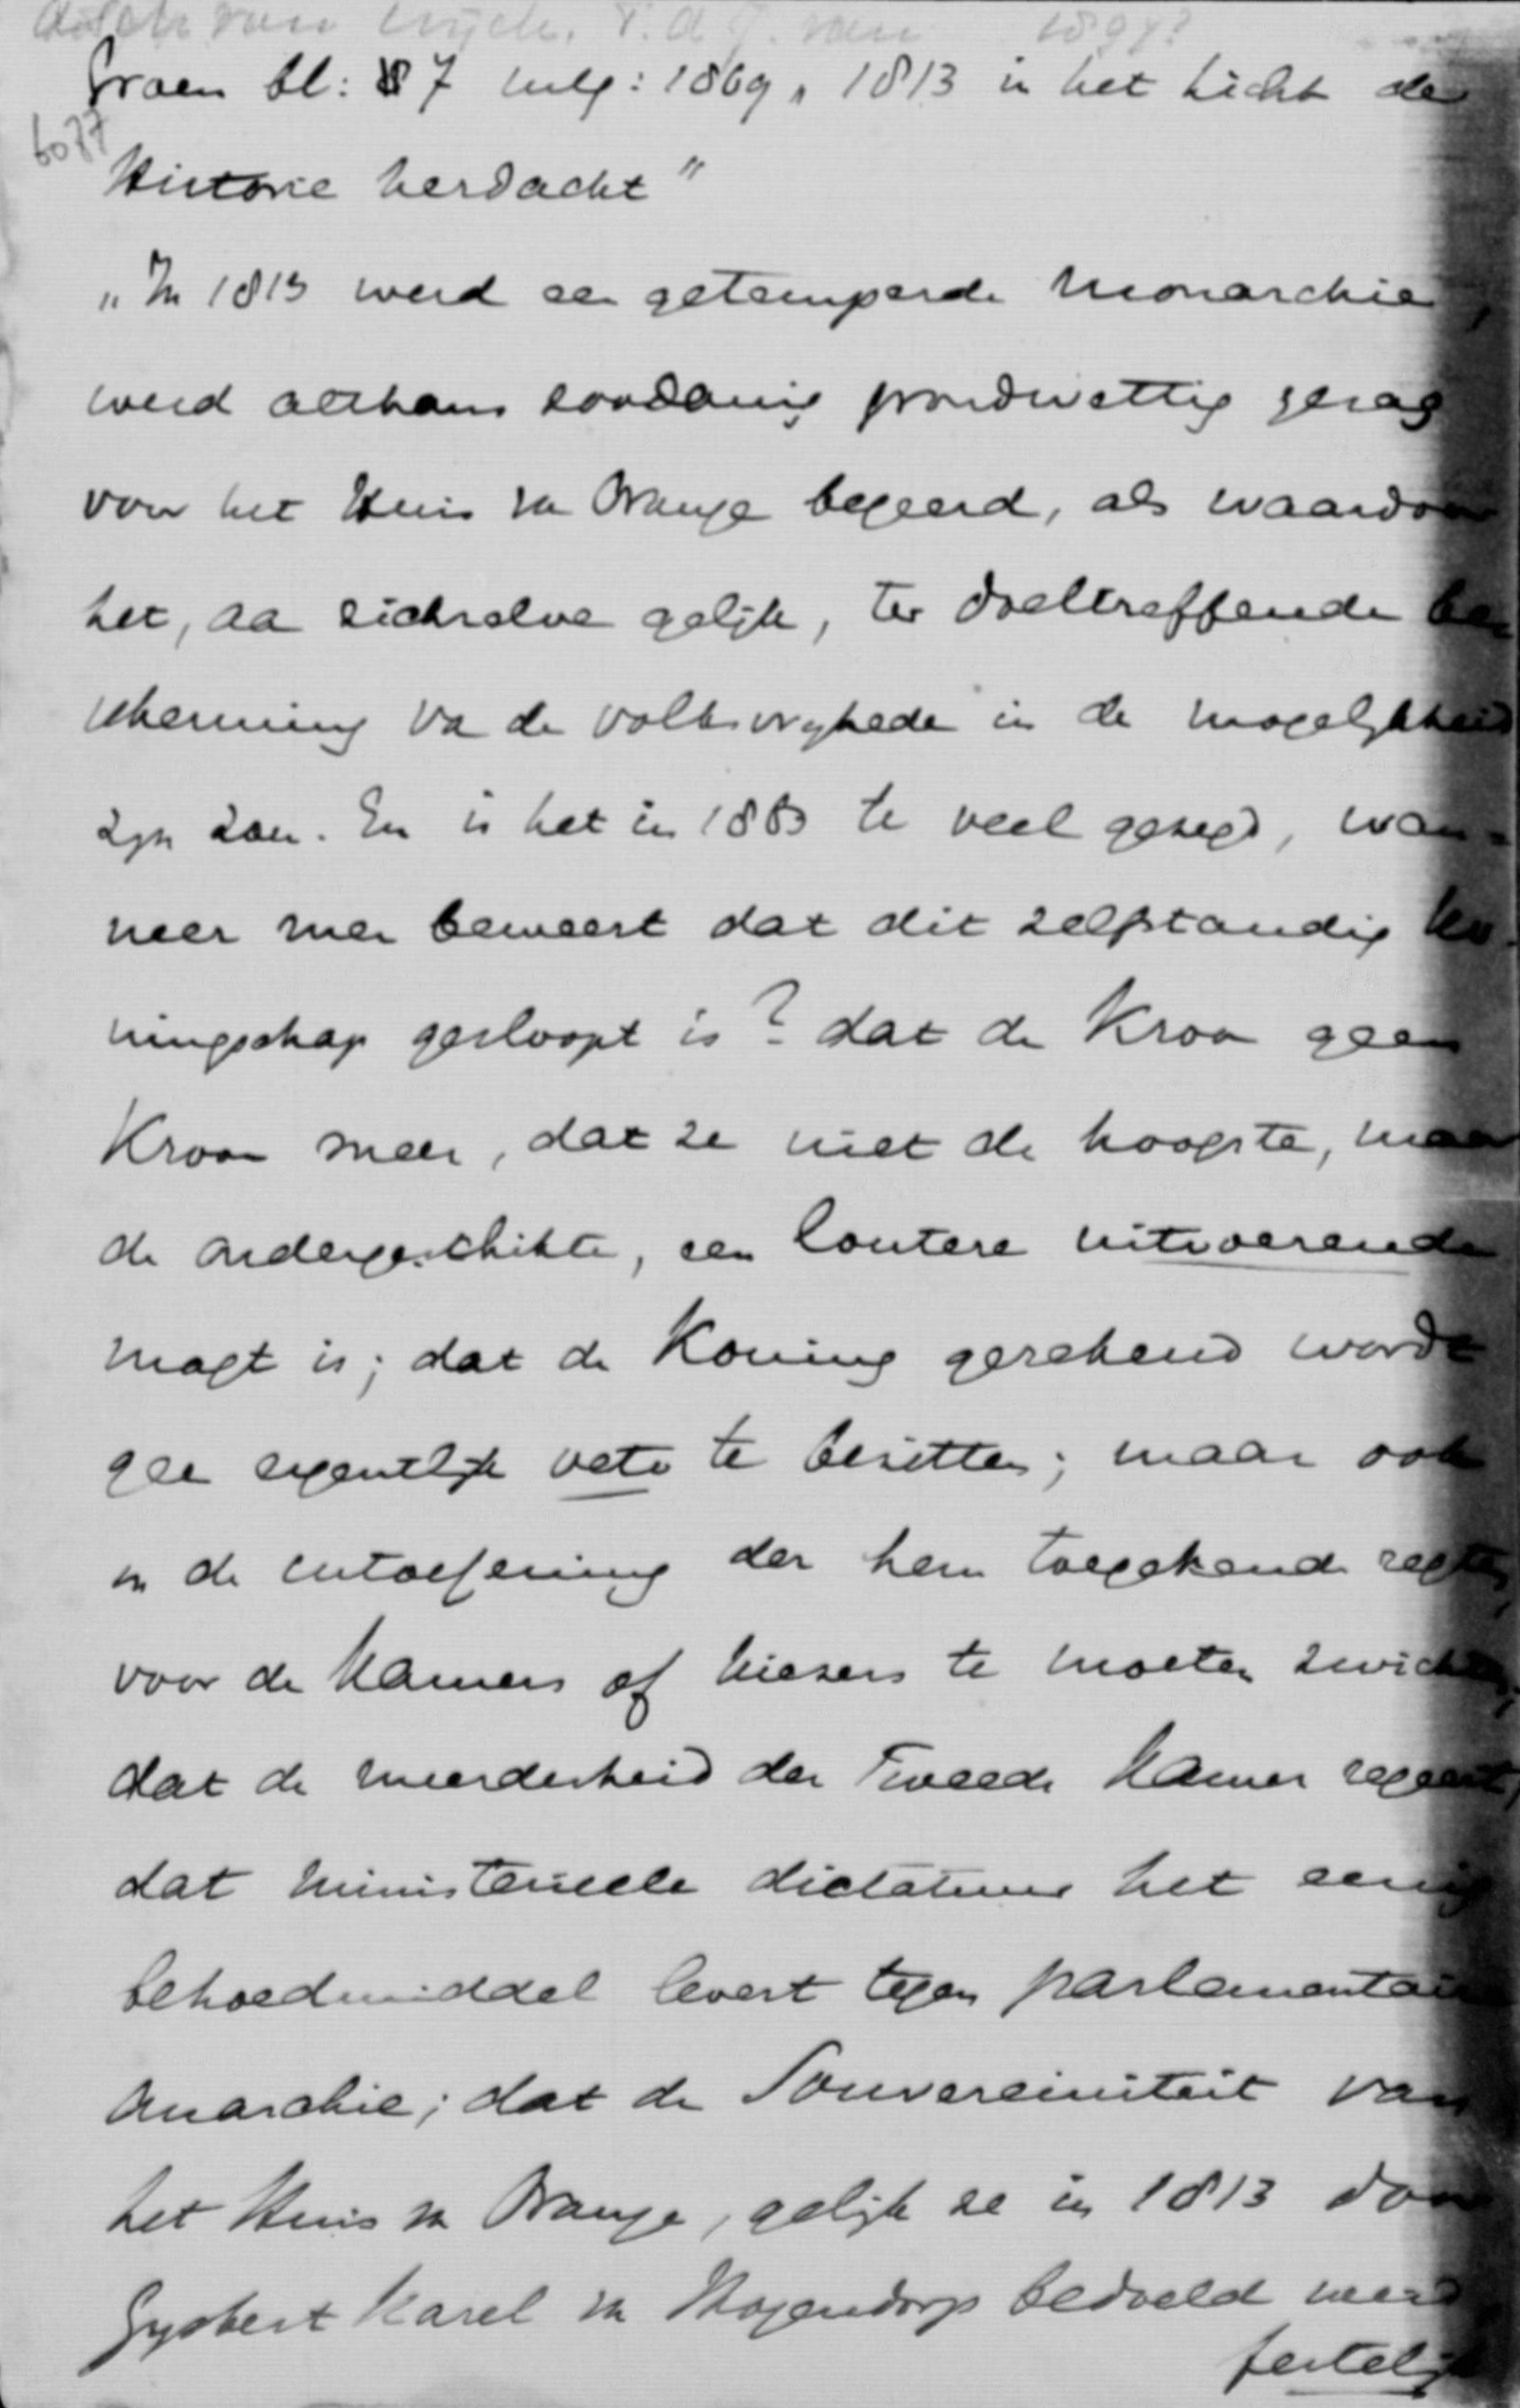 Groen bl: 87 uitg: 1869 „ 1813 in het licht der
6077
Historie herdacht"
„ In 1813 werd een getemperde monarchie,
werd althans zoodanig grondwettig gezag
voor het Huis va Oranje begeerd, als waardoor
het, aa zichzelve gelijk, ter doeltreffende be=
scherming va de volksvryhede in de mogelykheid
zyn zou. En is het in 1863 te veel gezegd, wan=
neer men beweert dat dit zelfstandig ko-
ningschap gesloopt is? dat de Kroon geen
Kroon meer, dat ze niet de hoogste, maar
de ondergeschikte, een loutere uitvoerende
magt is; dat de Koning gerekend wordt
gee eigentlijk veto te bezitten; maar ook
in de uitoefening der hem toegekende regten,
voor de Kamers of kiezers te moeten zwichten;
dat de meerderheid der Tweede Kamer regeert,
dat ministerieele dictatuur het eenig
behoedmiddel levert tegen parlementaire
anarchie; dat de Souvereiniteit van
het Huis va Oranje, gelijk ze in 1813 door
Gysbert Karel va Hogendorp bedoeld werd
feitelijk